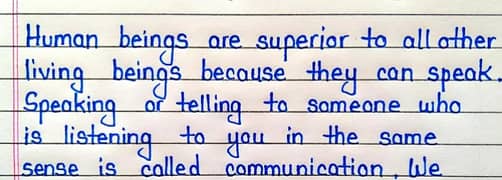 Human beings are superior to all other
living beings because they can speak.
Speaking or telling to someone who
is listening to you in the same
sense is called communication. We